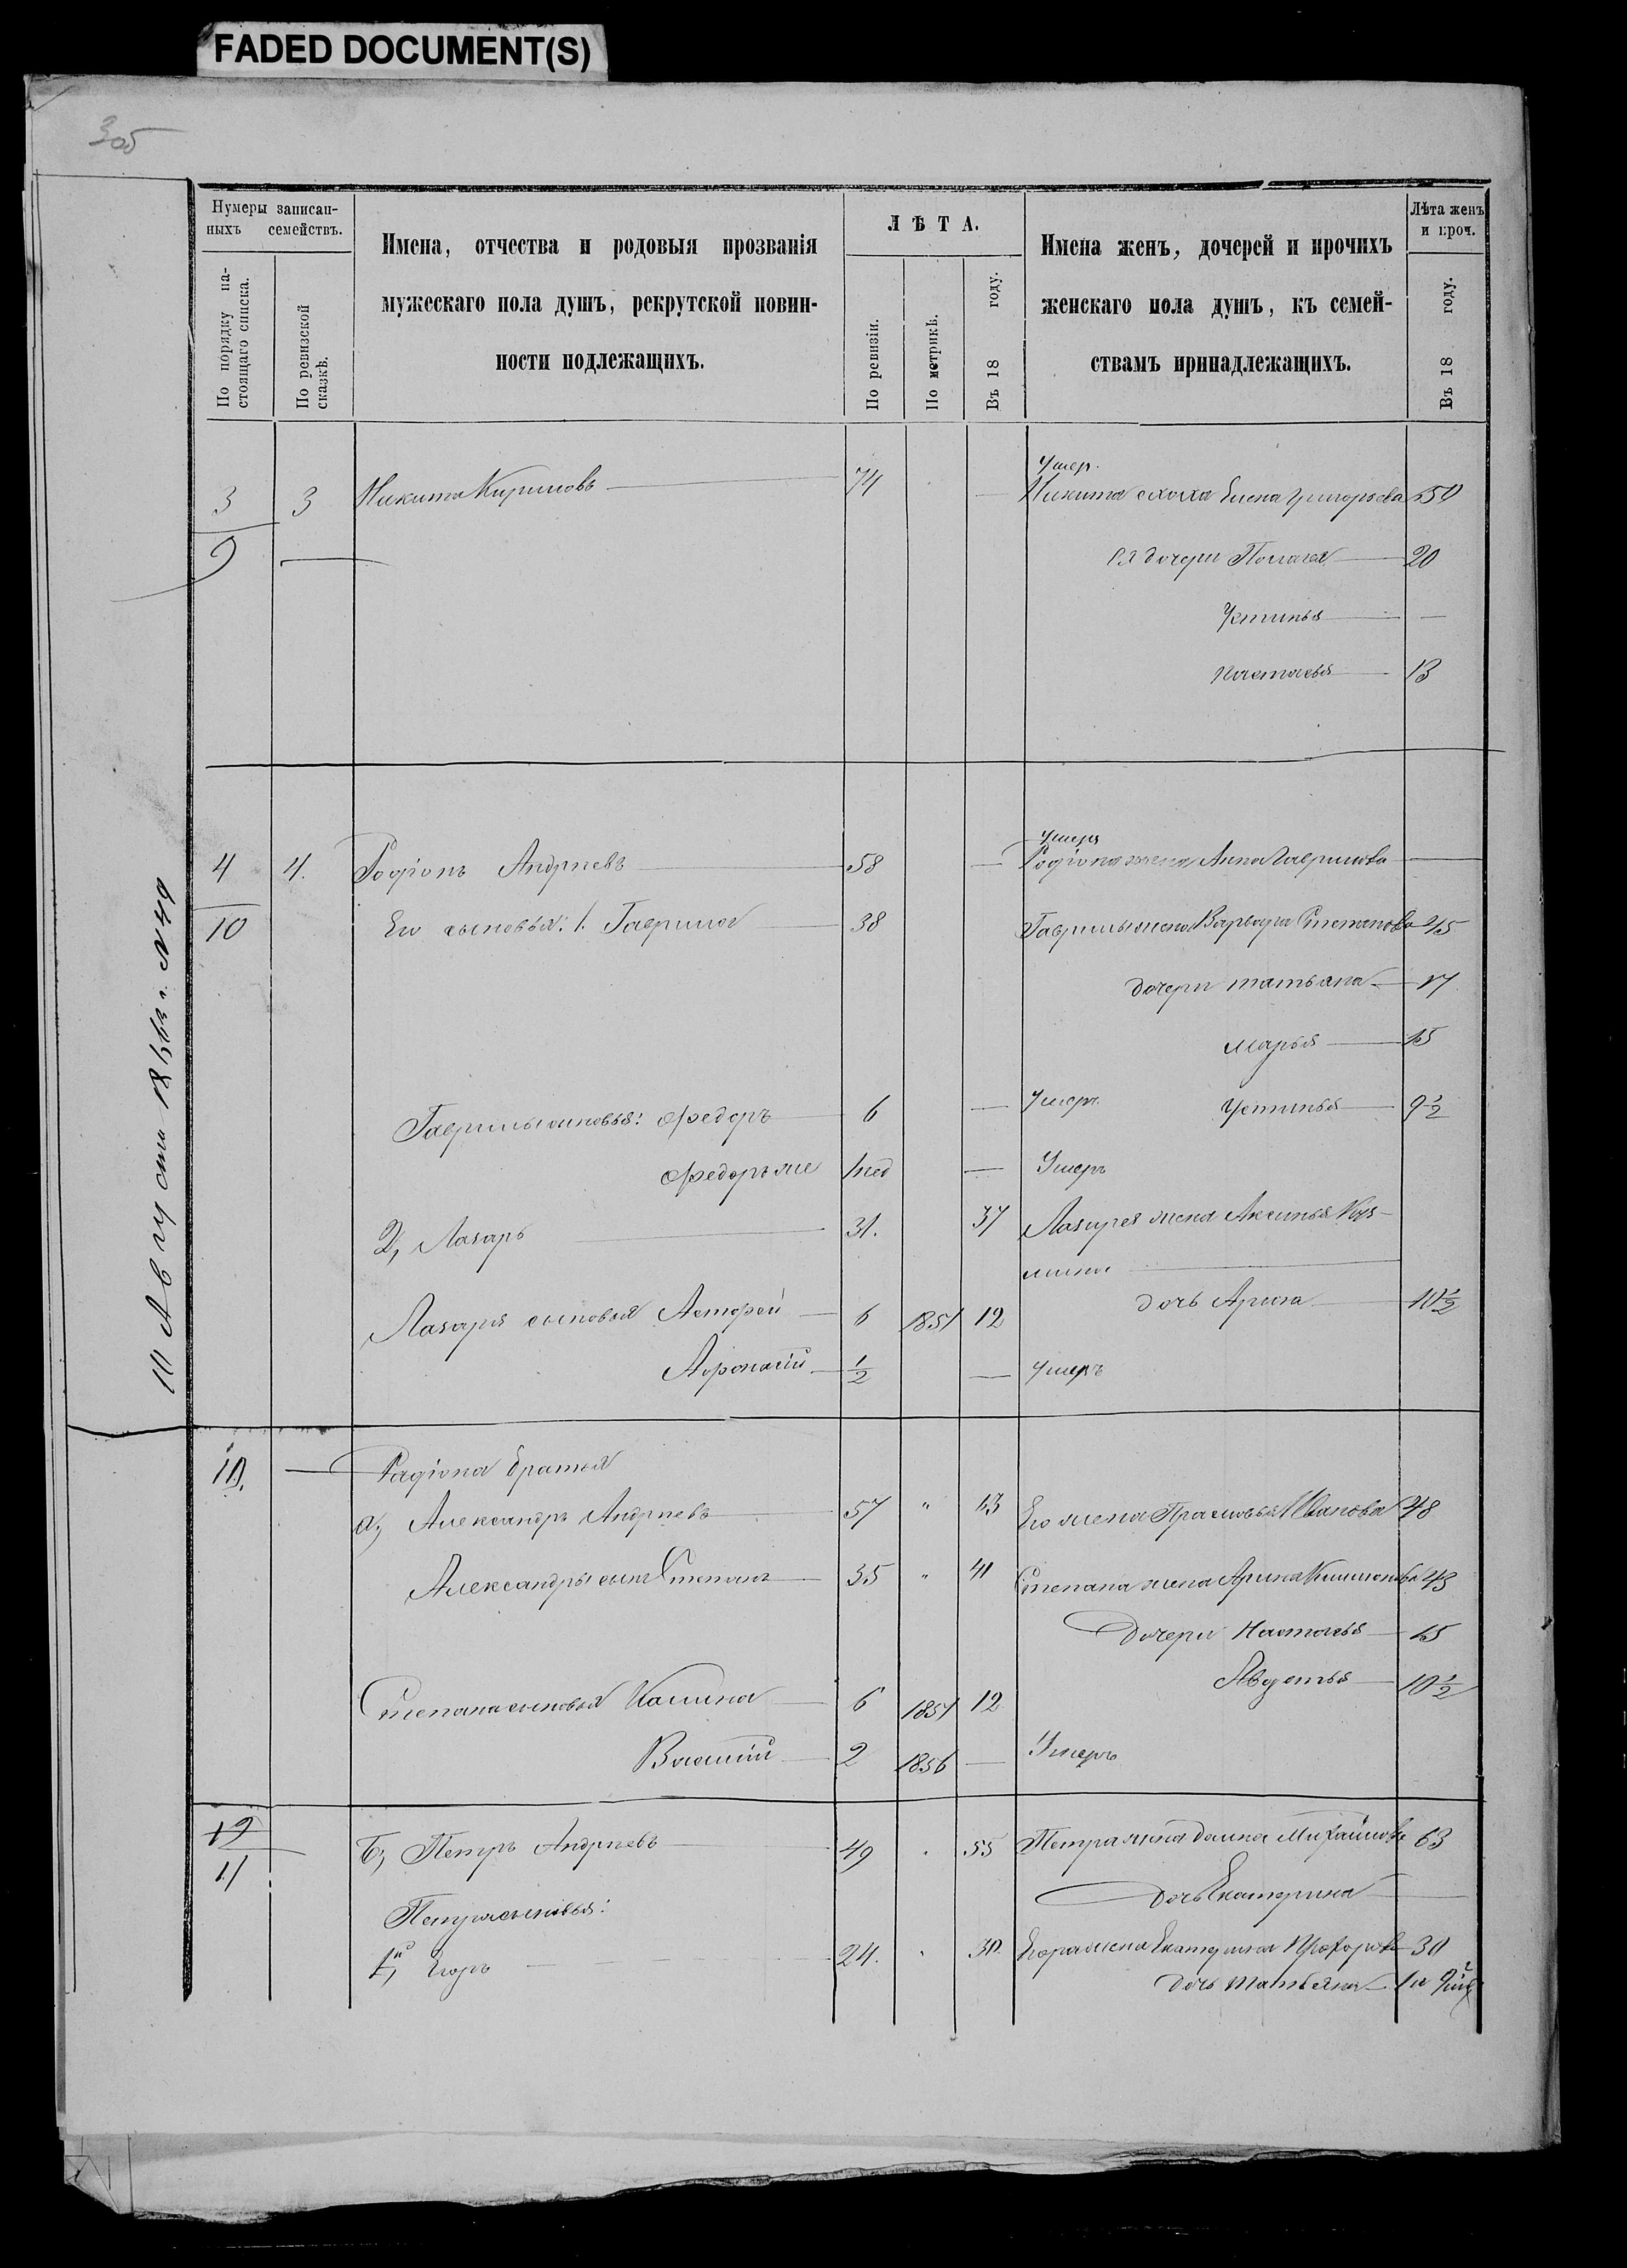 FADED DOCUMENT(S)
305
Нумеры записан-
ныхъ семействъ.
По порядку на-
стоящаго списка.
По ревизской
сказкѣ.
Имена, отчества и родовыя прозванія
мужескаго пола душъ, рекрутской повин-
ности подлежащихъ.
ЛѢТА.
По ревизіи.
По метрикѣ.
Въ 18 году.
Имена женъ, дочерей и прочихъ
женскаго пола душъ, къ семей-
ствамъ принадлежащихъ.
Лѣта женъ
и проч.
Въ 18 году.
10 Августа 1863 г. N 49
Умер.
3 3 Никита Кириловъ 74 — Никита сноха Елена Григорьева 50
9 — Ея дочери Полагея 20
Устинья —
Настасья 13
Умеръ
4 4. Родіонъ Андреевъ 58 — Родіона жена Анна Гаврилова —
10 Его сыновья: 1. Гаврила 38 Гаврилы жена Варвара Степанова 45
дочери татьяна 17
марья 15
Гаврилы сыновья: Федоръ 6 — Умеръ Устинья 9 1/2
Федоръ же 1 нед — Умеръ
2, Лазарь 31. 37 Лазаря жена Аксинья Куз-
мина —
Лазаря сыновья Астафей 6 1851 12 дочь Арина 10 1/2
Афонасій 1/2 — Умеръ
10. — Радіона братья
а, Александръ Андреевъ 57 " 63 Его жена Прасковья Иванова 48
Александры сынъ Степанъ 35 " 41 Степана жена Арина 43
Дочери Настасья 15
Авдотья 10 1/2
Степана сыновья 6 1851 12
Василій 2 1856 — Умеръ
12
11 Б, Петръ Андреевъ 49 " 55 Петра жена домна Михайлова 63
дочь Екатерина —
Петра сыновья:
1й, Егоръ 24. " 30. Егора жена Екатерина Прохорова 30
дочь татьяна 1